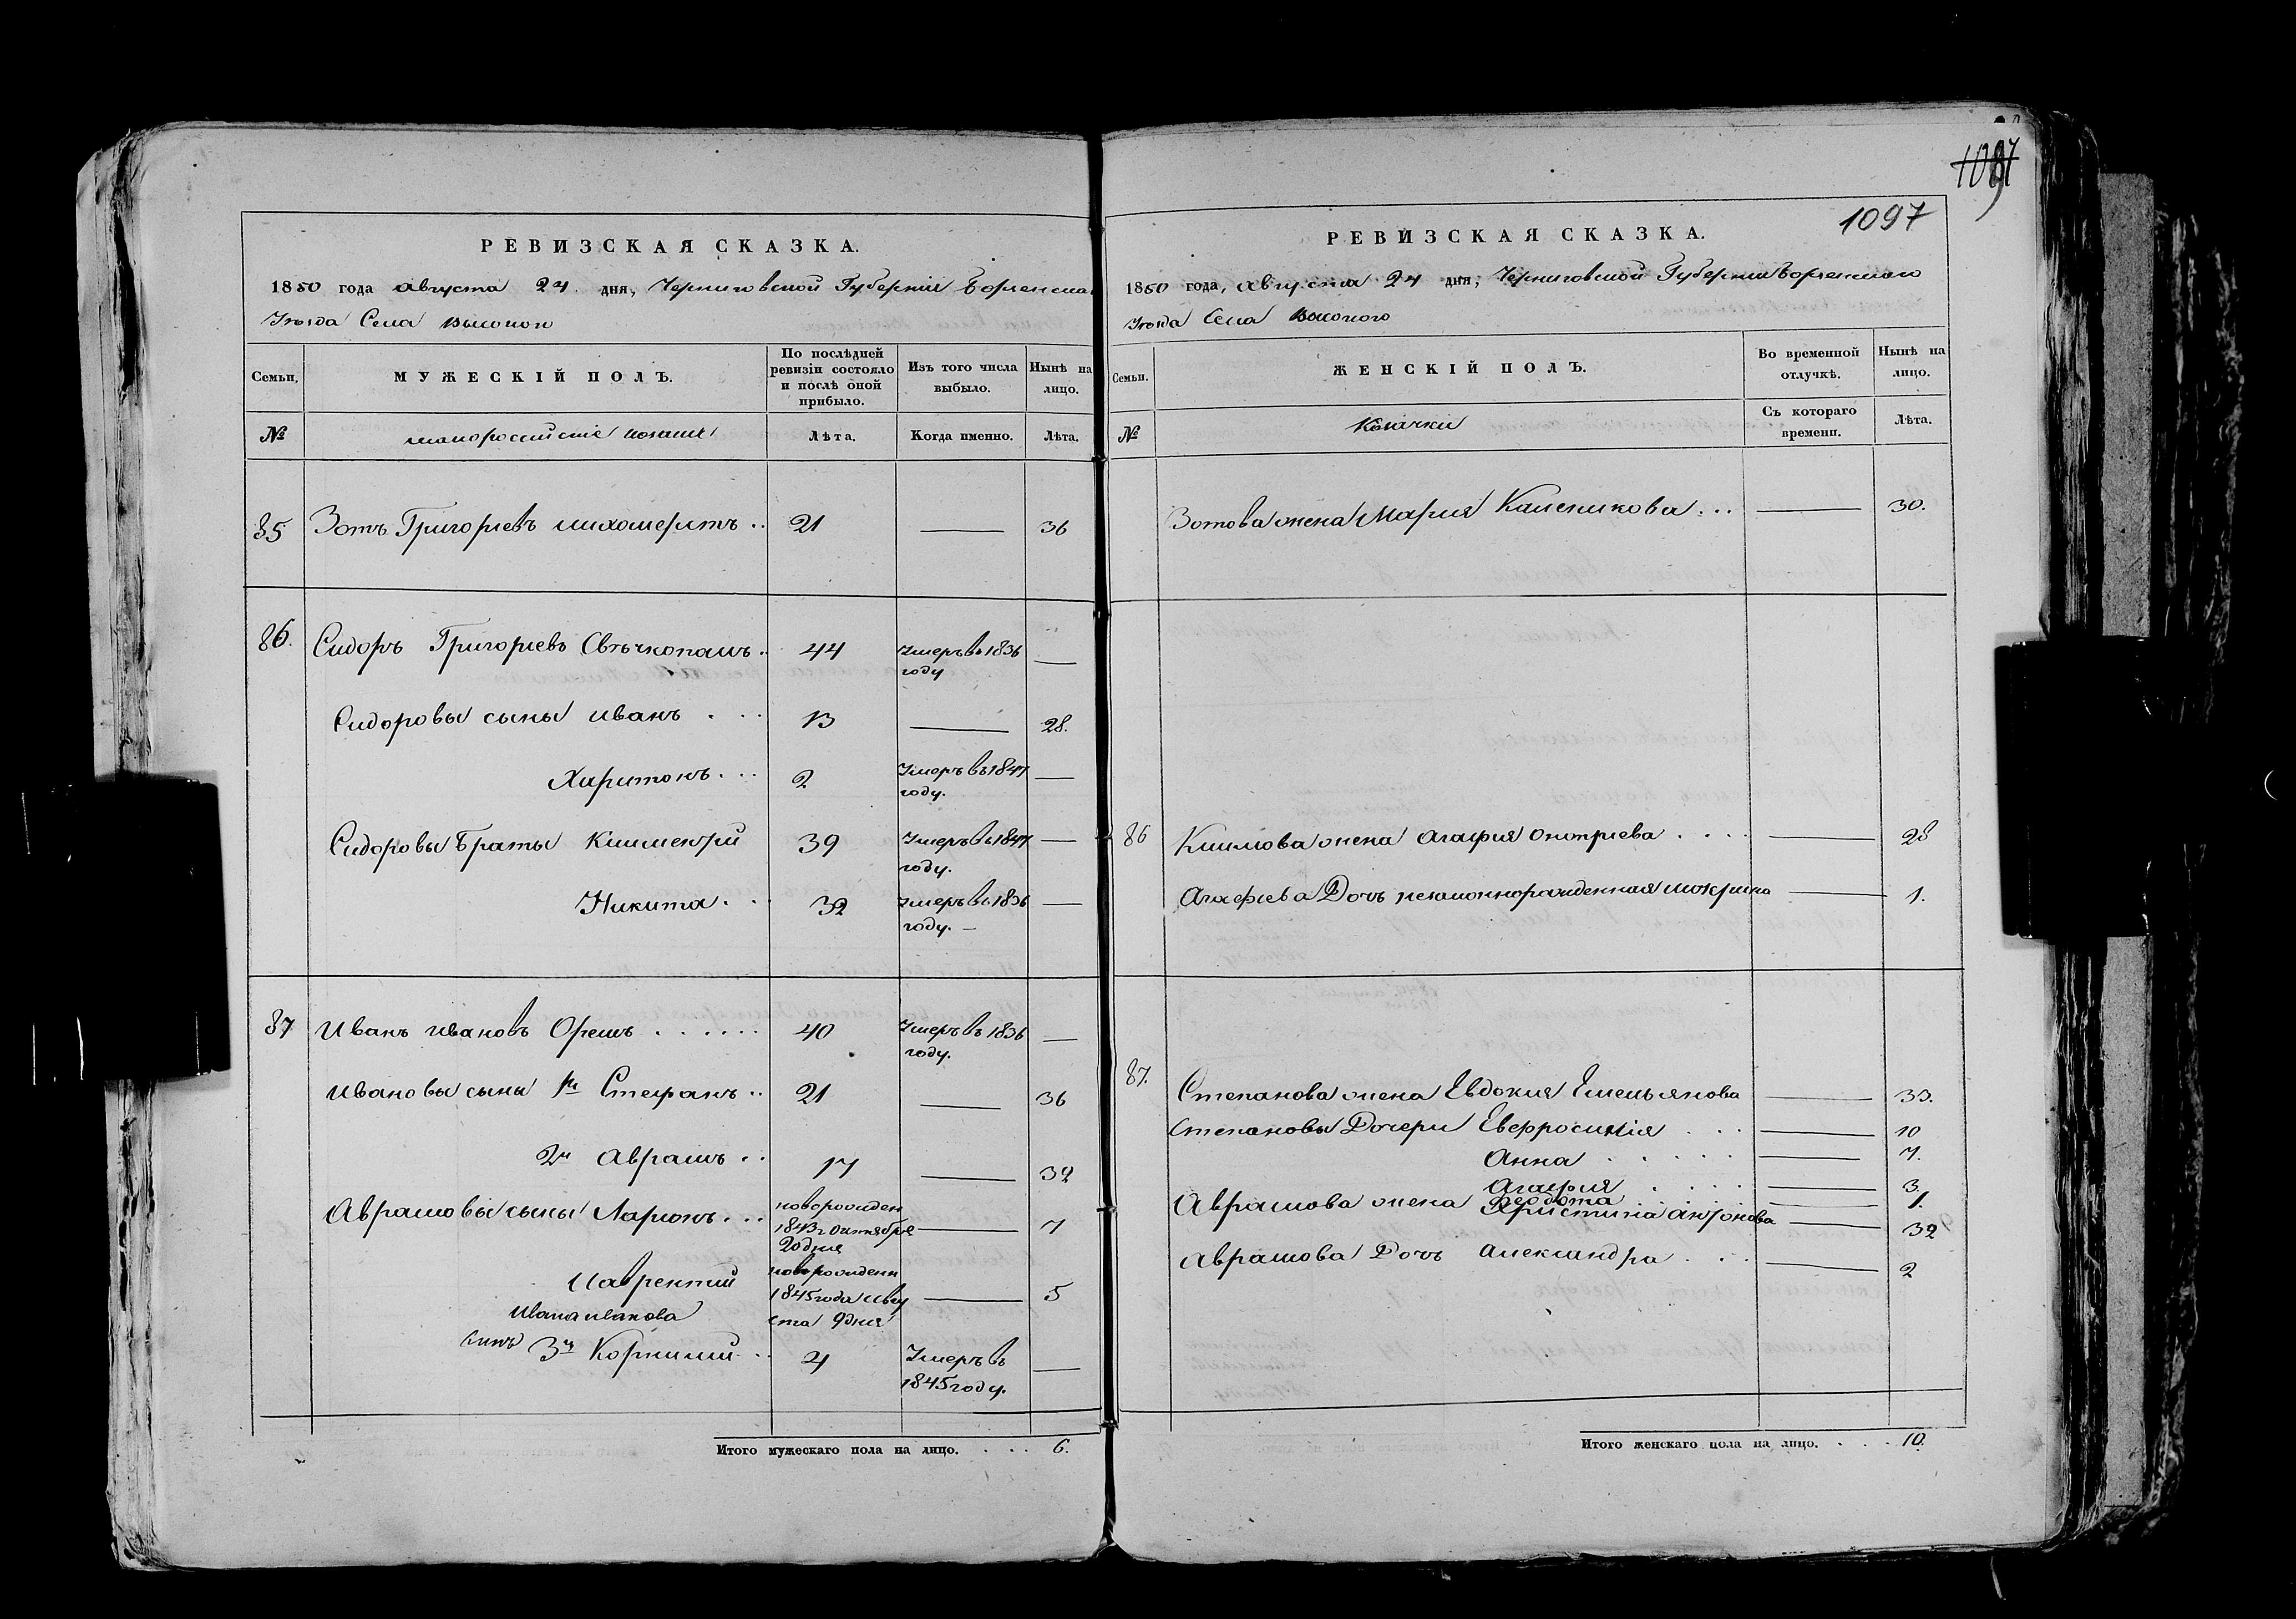 РЕВИЗСКАЯ СКАЗКА.
1850 года августа 24 дня, Черниговской Губернии Борзенска
Уѣзда Села Высокого
Семьи. МУЖЕСКІЙ ПОЛЪ. По послѣдней ревизіи состояло и послѣ оной прибыло. Изъ того числа выбыло. Нынѣ на лицо.
№ малороссийские козаки Лѣта. Когда именно. Лѣта.
85 Зотъ Григорьевъ 21 — 36
86. Сидоръ Григорьевъ Свѣчкопалъ 44 Умеръ въ 1836 году —
Сидоровы сыны Иванъ 13 — 28.
Харитонъ 2 Умеръ въ 1847 году. —
Сидоровы Браты Климентий 39 Умеръ въ 1847 году. —
Никита 32 Умеръ въ 1836 году. —
87 Иванъ Ивановъ Орелъ 40 Умеръ въ 1836 году. —
Ивановы сыны 1й Стефанъ 21 — 36
2й Аврамъ 17 — 32
Аврамовы сыны Ларионъ новорожден 1843 г Октября 20 дня — 7
Лаврентий новорожденн 1845 года Авгу ста 9 дня — 5
Ивана Иванова
сынъ 3й Корнилий 4 Умеръ въ 1845 году. —
Итого мужескаго пола на лицо. 6.
1097
1097
РЕВИЗСКАЯ СКАЗКА.
1850 года, августа 24 дня, Черниговской Губернии Борзенского
Уѣзда Села Высокого
Семьи. ЖЕНСКІЙ ПОЛЪ. Во временной отлучкѣ. Нынѣ на лицо.
№ Козачки Съ котораго времени. Лѣта.
Зотова жена Мария Каленикова — 30.
86 Климова жена Агафия Оноприева — 28
Агафиева Дочь незаконнорожденная Мокрина — 1.
87. Степанова жена Евдокия Емельянова — 33.
Степановы Дочери Евфросиния — 10
Анна — 7.
Агафия — 3.
Феодота — 1.
Аврамова жена Христина Антонова — 32
Аврамова Дочь Александра — 2
Итого женскаго пола на лицо. 10.